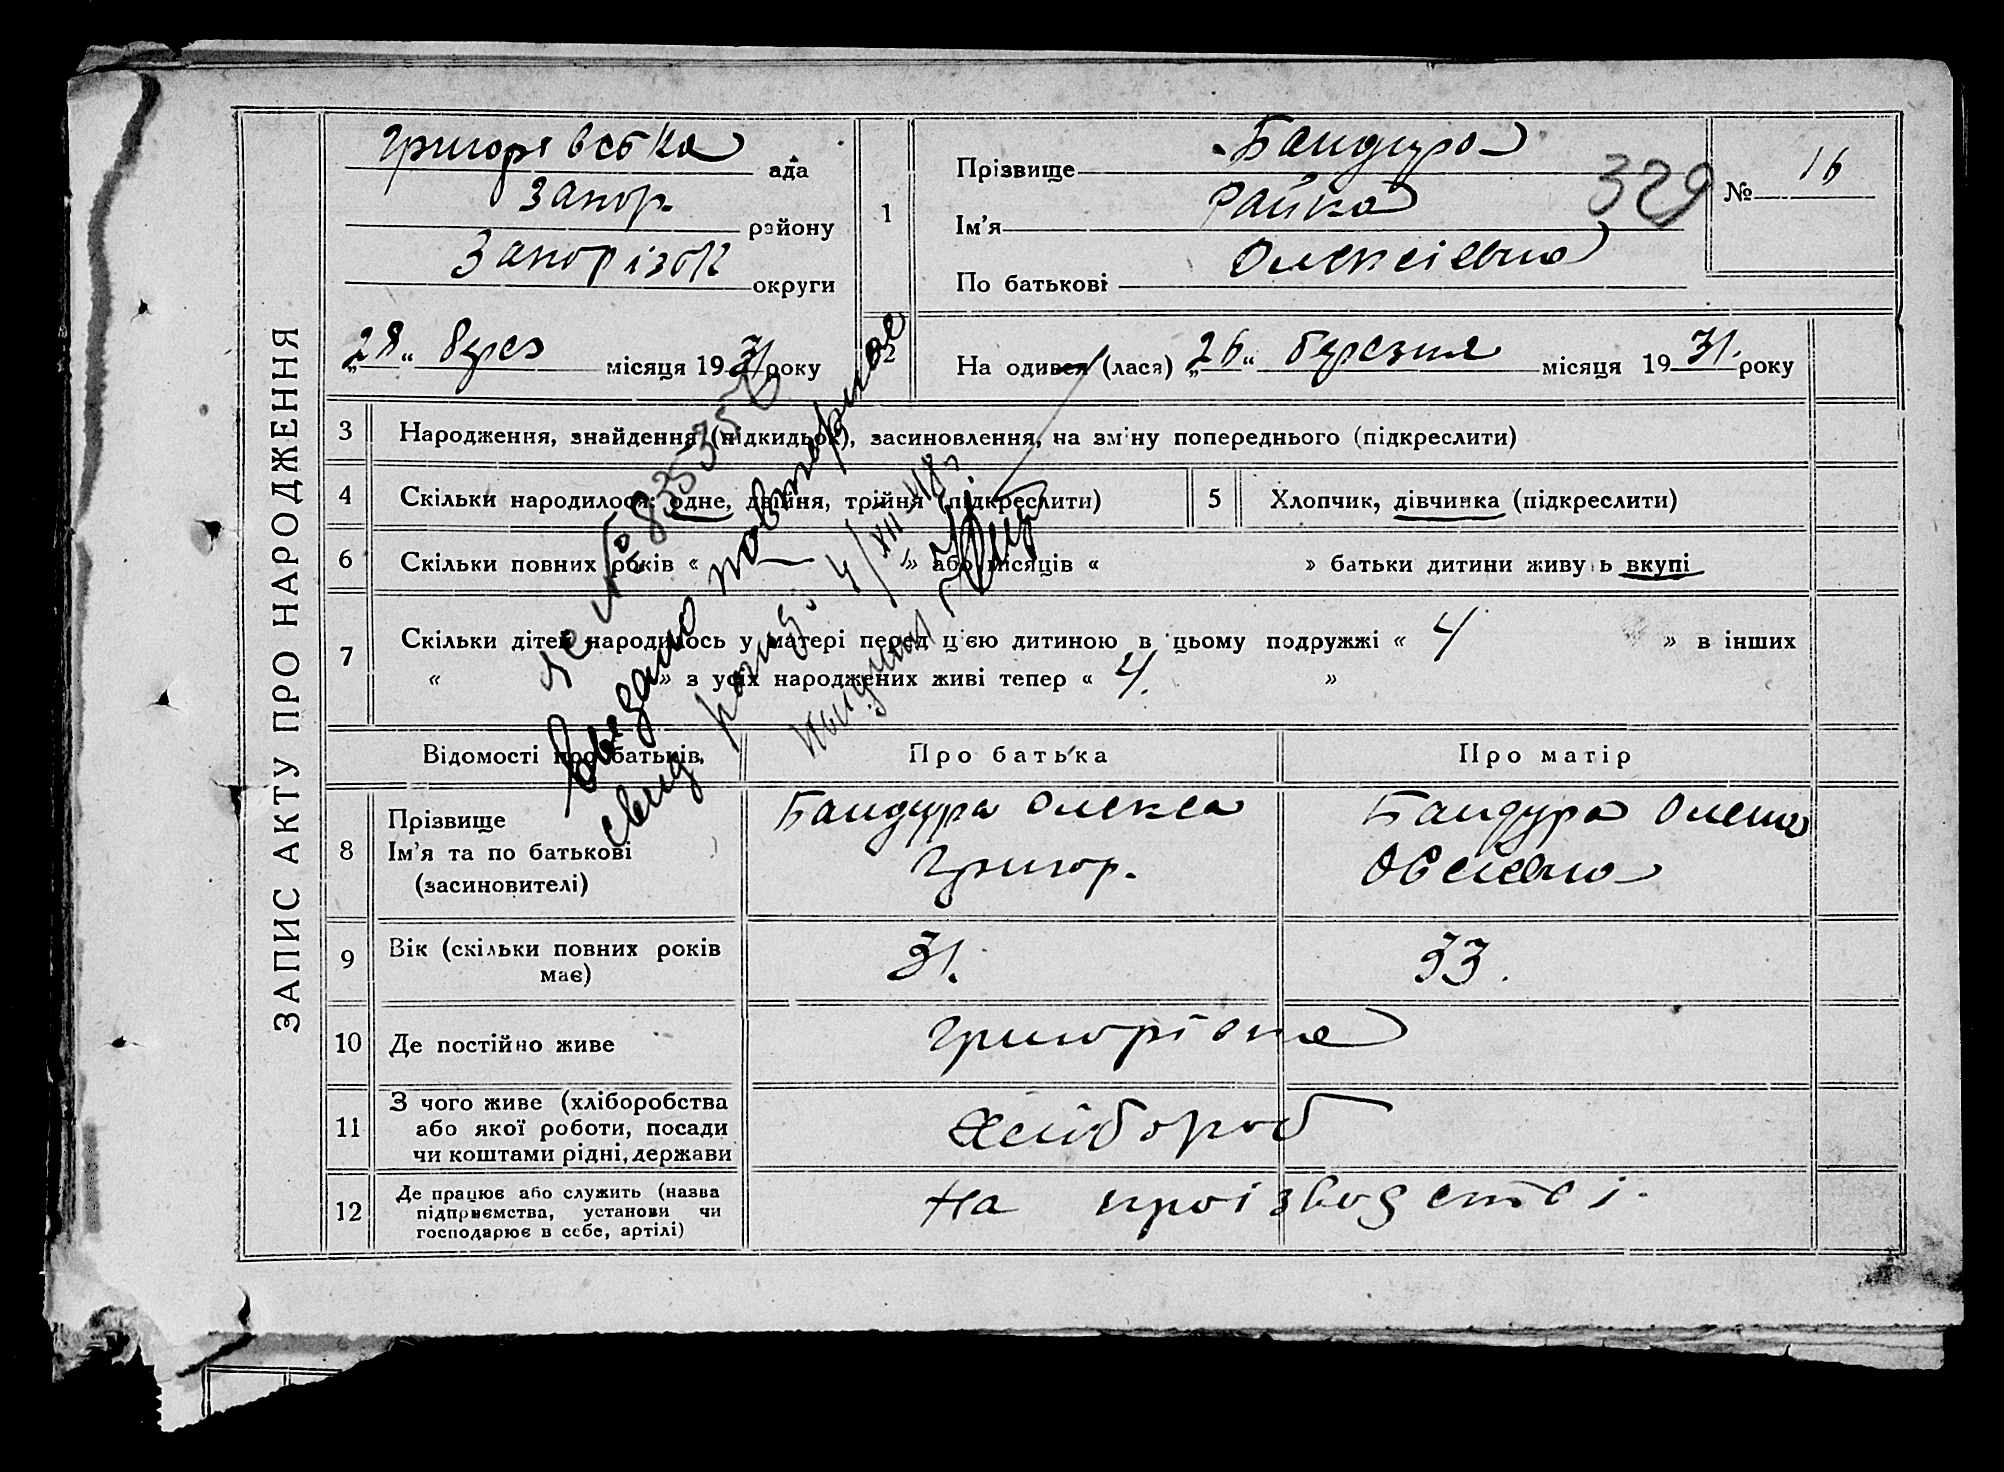 ЗАПИС АКТУ ПРО НАРОДЖЕННЯ
Григорівська ада
Запор. району
Запорізьк округи
„28“ берез місяця 1931 року
1
Прізвище Бандура
Ім'я Райка
По батькові Олексіевна
329
№ 16
2
На одився (лася) „26“ березня місяця 1931. року
3 Народження, знайдення (підкидьок), засиновлення, на зміну попереднього (підкреслити)
4 Скільки народилося: одне, двійня, трійня (підкреслити)
5 Хлопчик, дівчинка (підкреслити)
6 Скільки повних років « — » або місяців « » батьки дитини живуть вкупі
7 Скільки дітей народилось у матері перед цією дитиною в цьому подружжі « 4 » в інших
« » з усіх народжених живі тепер « 4. »
ЯС № 833350
Выдано повторное
свид 4/XII 48 г
Відомості про батьків, Про батька Про матір
8 Прізвище
Ім'я та по батькові
(засиновителі)
Бандура Олекса
Григор.
Бандура Олена
Овсіевна
9 Вік (скільки повних років
має)
31. 33.
10 Де постійно живе Григорівка
11 З чого живе (хліборобства
або якої роботи, посади
чи коштами рідні, держави
Хлібороб
12 Де працює або служить (назва
підприємства, установи чи
господарює в себе, артілі)
На проізводстві.